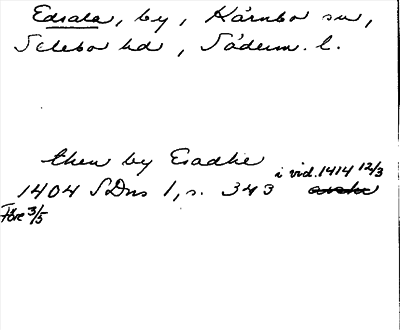 Edsala, by, Kärnbo sn,
Selebo hd, Söderm. l.
then by Eradhe
i vid. 1414 12/3
1404 SDns 1, s. 343 avskr
Före 3/5